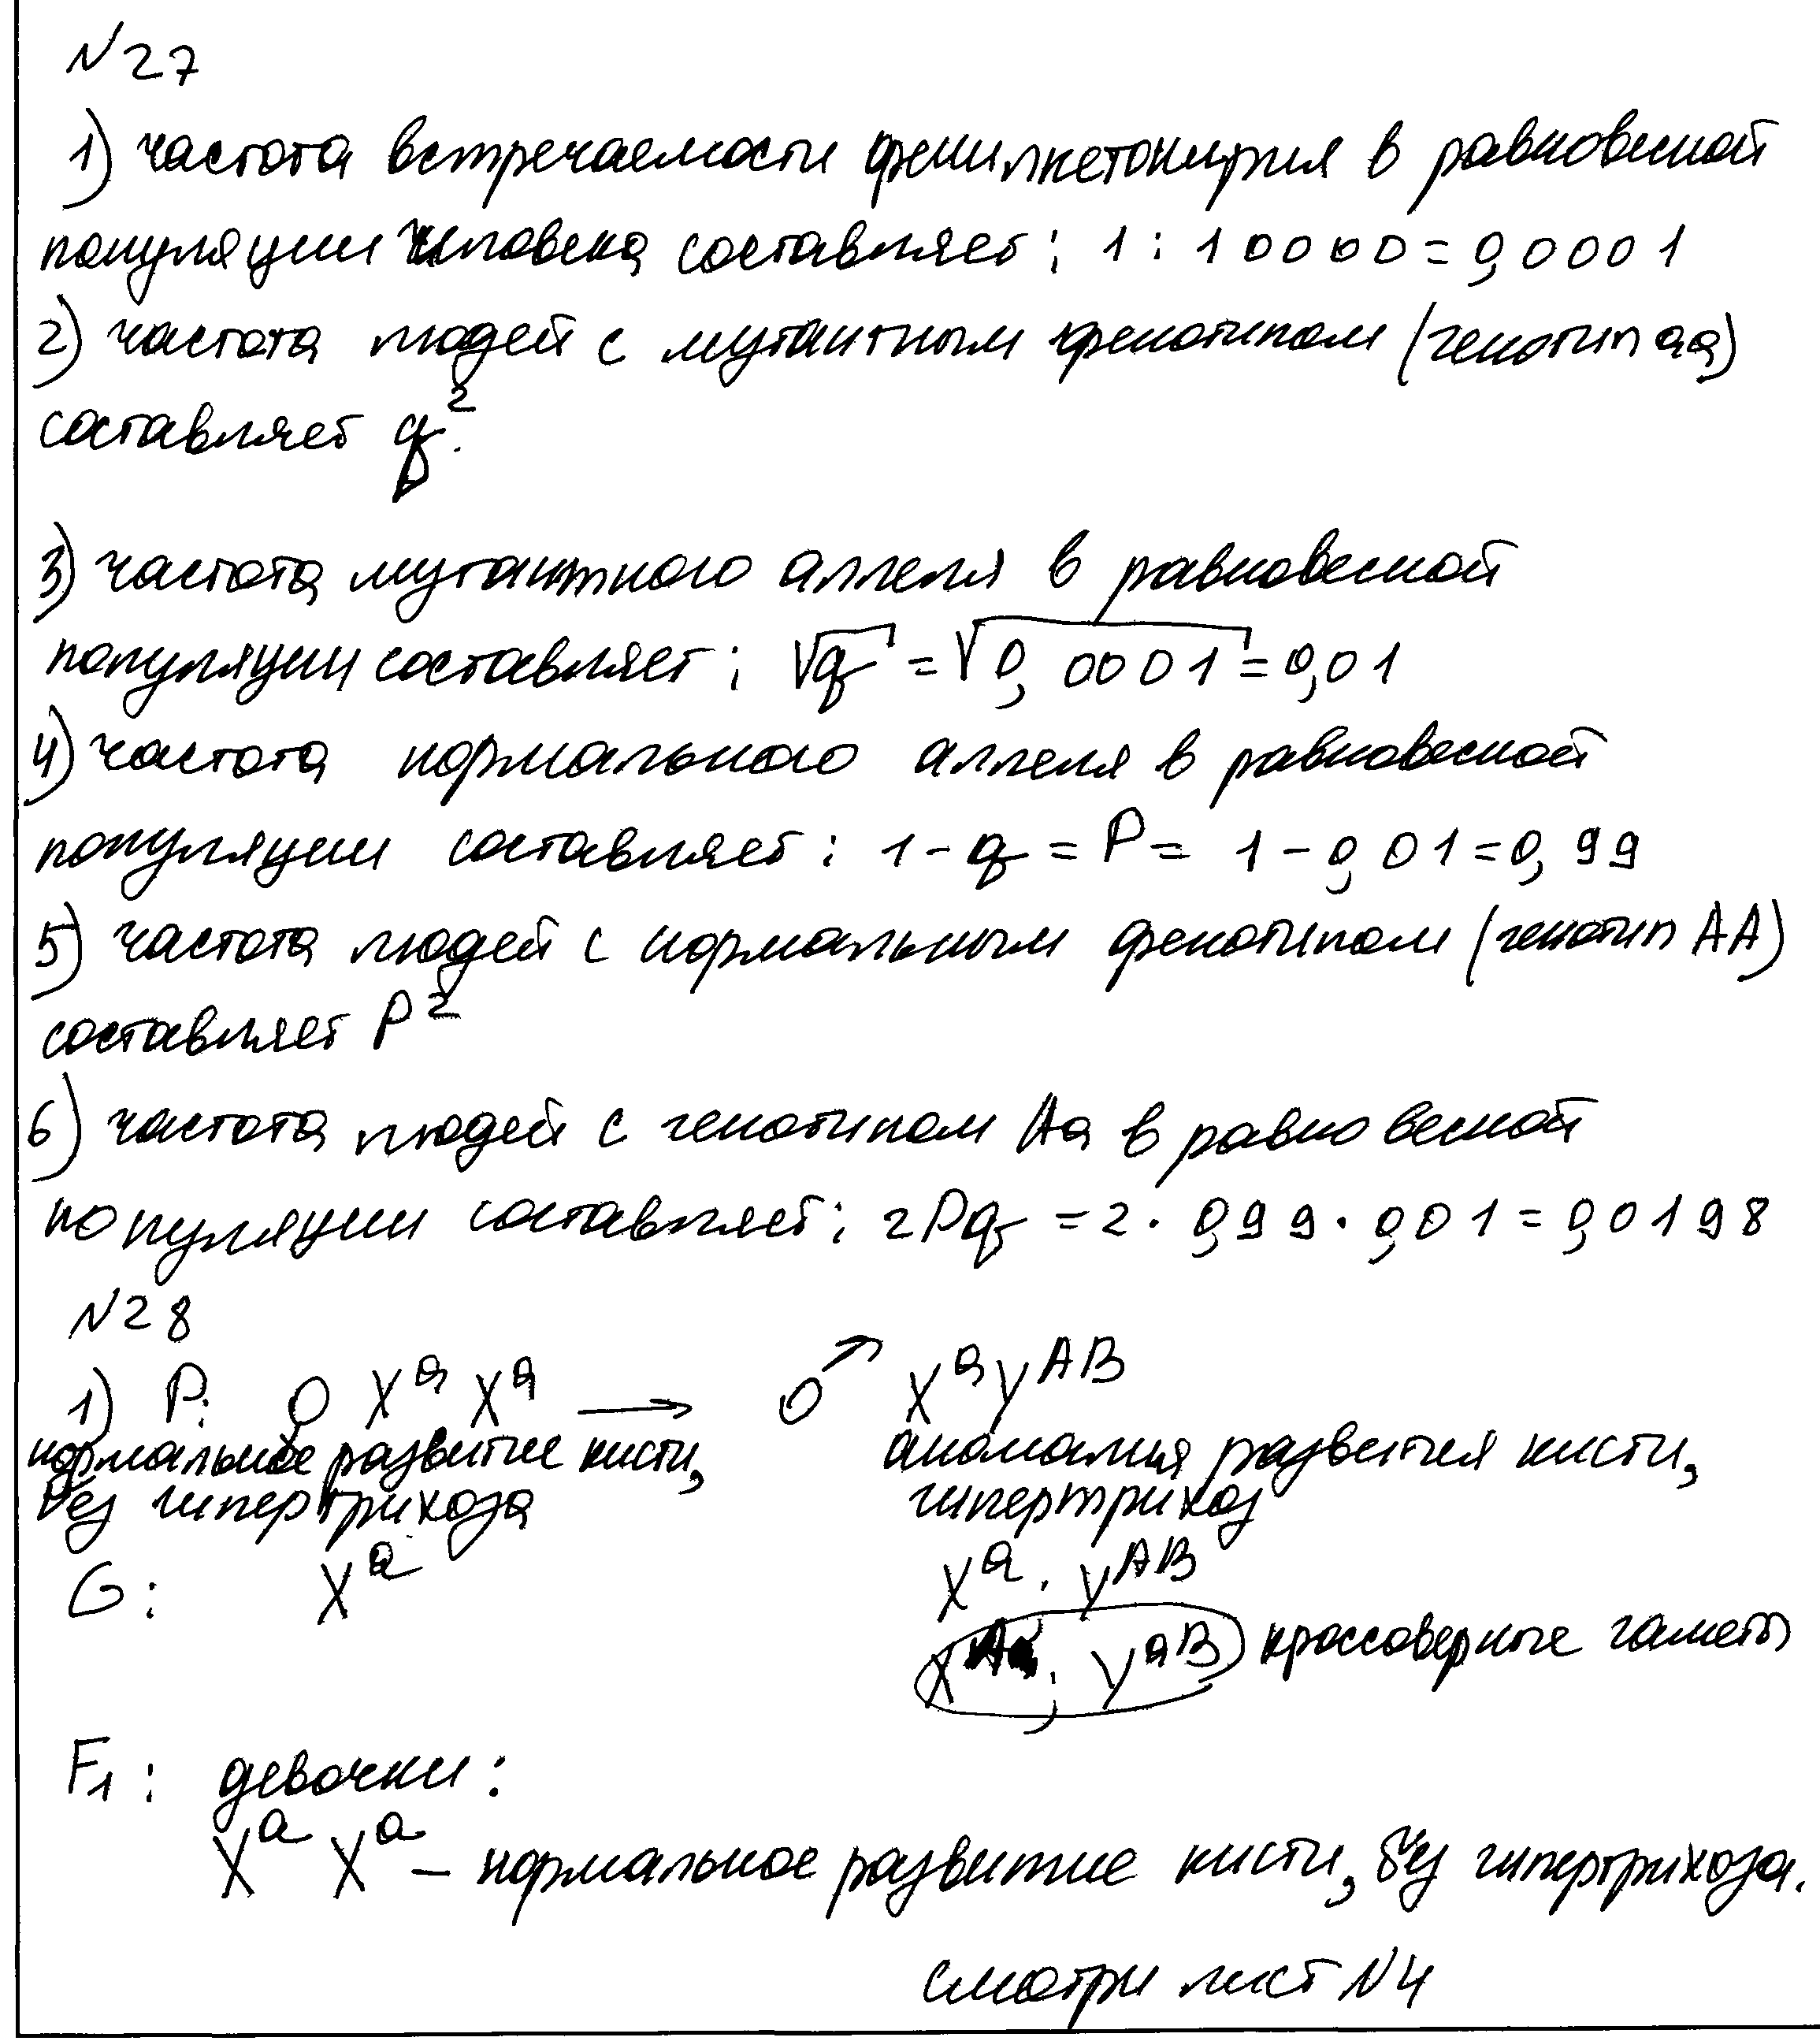 N27
1) частота встречаемости фенилкетонурия в равновесной
популяции человека составляет: 1:10000=0,0001
2) частота людей с мутантным фенотипом (генотип aa)
составляет q².
3) частота мутантного аллеля в равновесной
популяции составляет: √q = √0,0001 = 0,01
4) частота нормального аллеля в равновесной
популяции составляет: 1-q = P = 1-0,01=0,99
5) частота людей с нормальным фенотипом (генотип AA)
составляет P²
6) частота людей с генотипом Aa в равновесной
популяции составляет: 2Pq = 2·0,99·0,01 = 0,0198
N28
1) P: ♀ XᵃXᵃ → ♂ XᵃYᴬᴮ
нормальное развитие кисти, аномалия развития кисти,
без гипертрихоза гипертрихоз
G: Xᵃ Xᵃ; Yᴬᴮ
Xᴬ; Yᵃᴮ кроссоверные гаметы
F₁: девочки:
XᵃXᵃ – нормальное развитие кисти, без гипертрихоза.
смотри лист N4